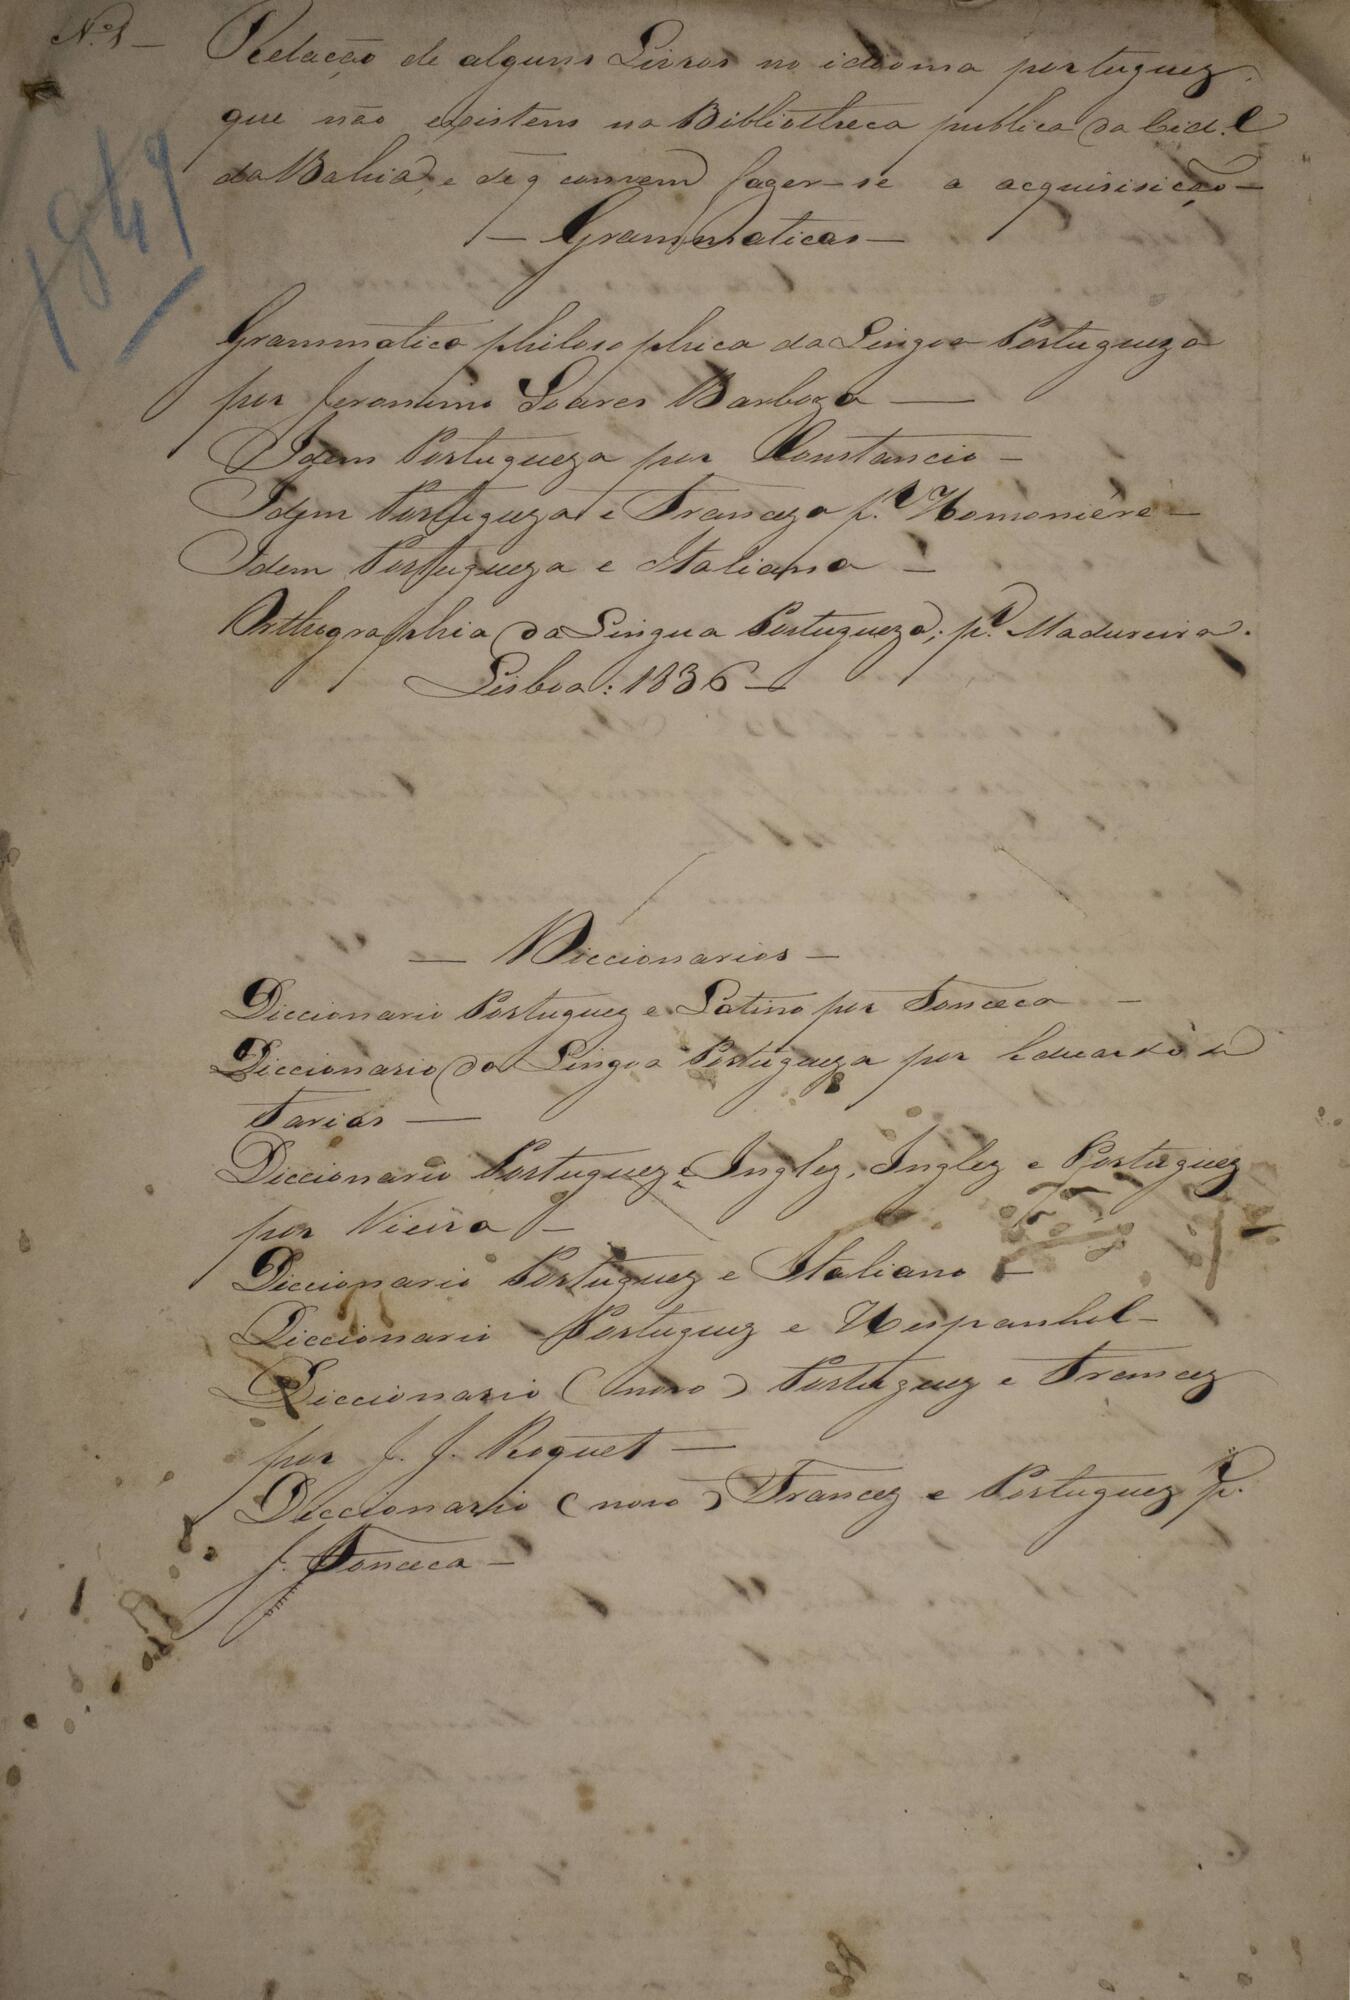 N.º 1 — Relação de alguns Livros no idioma portuguez,
que não existem na Bibliotheca publica da Cid.e
da Bahia, e de q convem fazer-se a acquisisição —
1849
— Grammaticas —
Grammatica philosophica da Lingoa Portugueza
por Jeronimo Soares Barboza —
Idem Portugueza por Constancio —
Idem Portugueza e Franceza p.r Hamonière —
Idem Portugueza e Italiana —
Orthographia da Lingua Portugueza; p.r Madureira.
Lisboa: 1836 —
— Diccionarios —
Diccionario Portuguez e Latino por Fonceca —
Diccionario da Lingoa Portugueza por Eduardo de
Farias —
Diccionario Portuguez e Inglez, Inglez e Portuguez
por Vieira —
Diccionario Portuguez e Italiano —
Diccionario Portuguez e Hespanhol —
Diccionario (novo) Portuguez e Francez
por J. J. Roquet —
Diccionario (novo) Francez e Portuguez p.r
J. Fonceca —